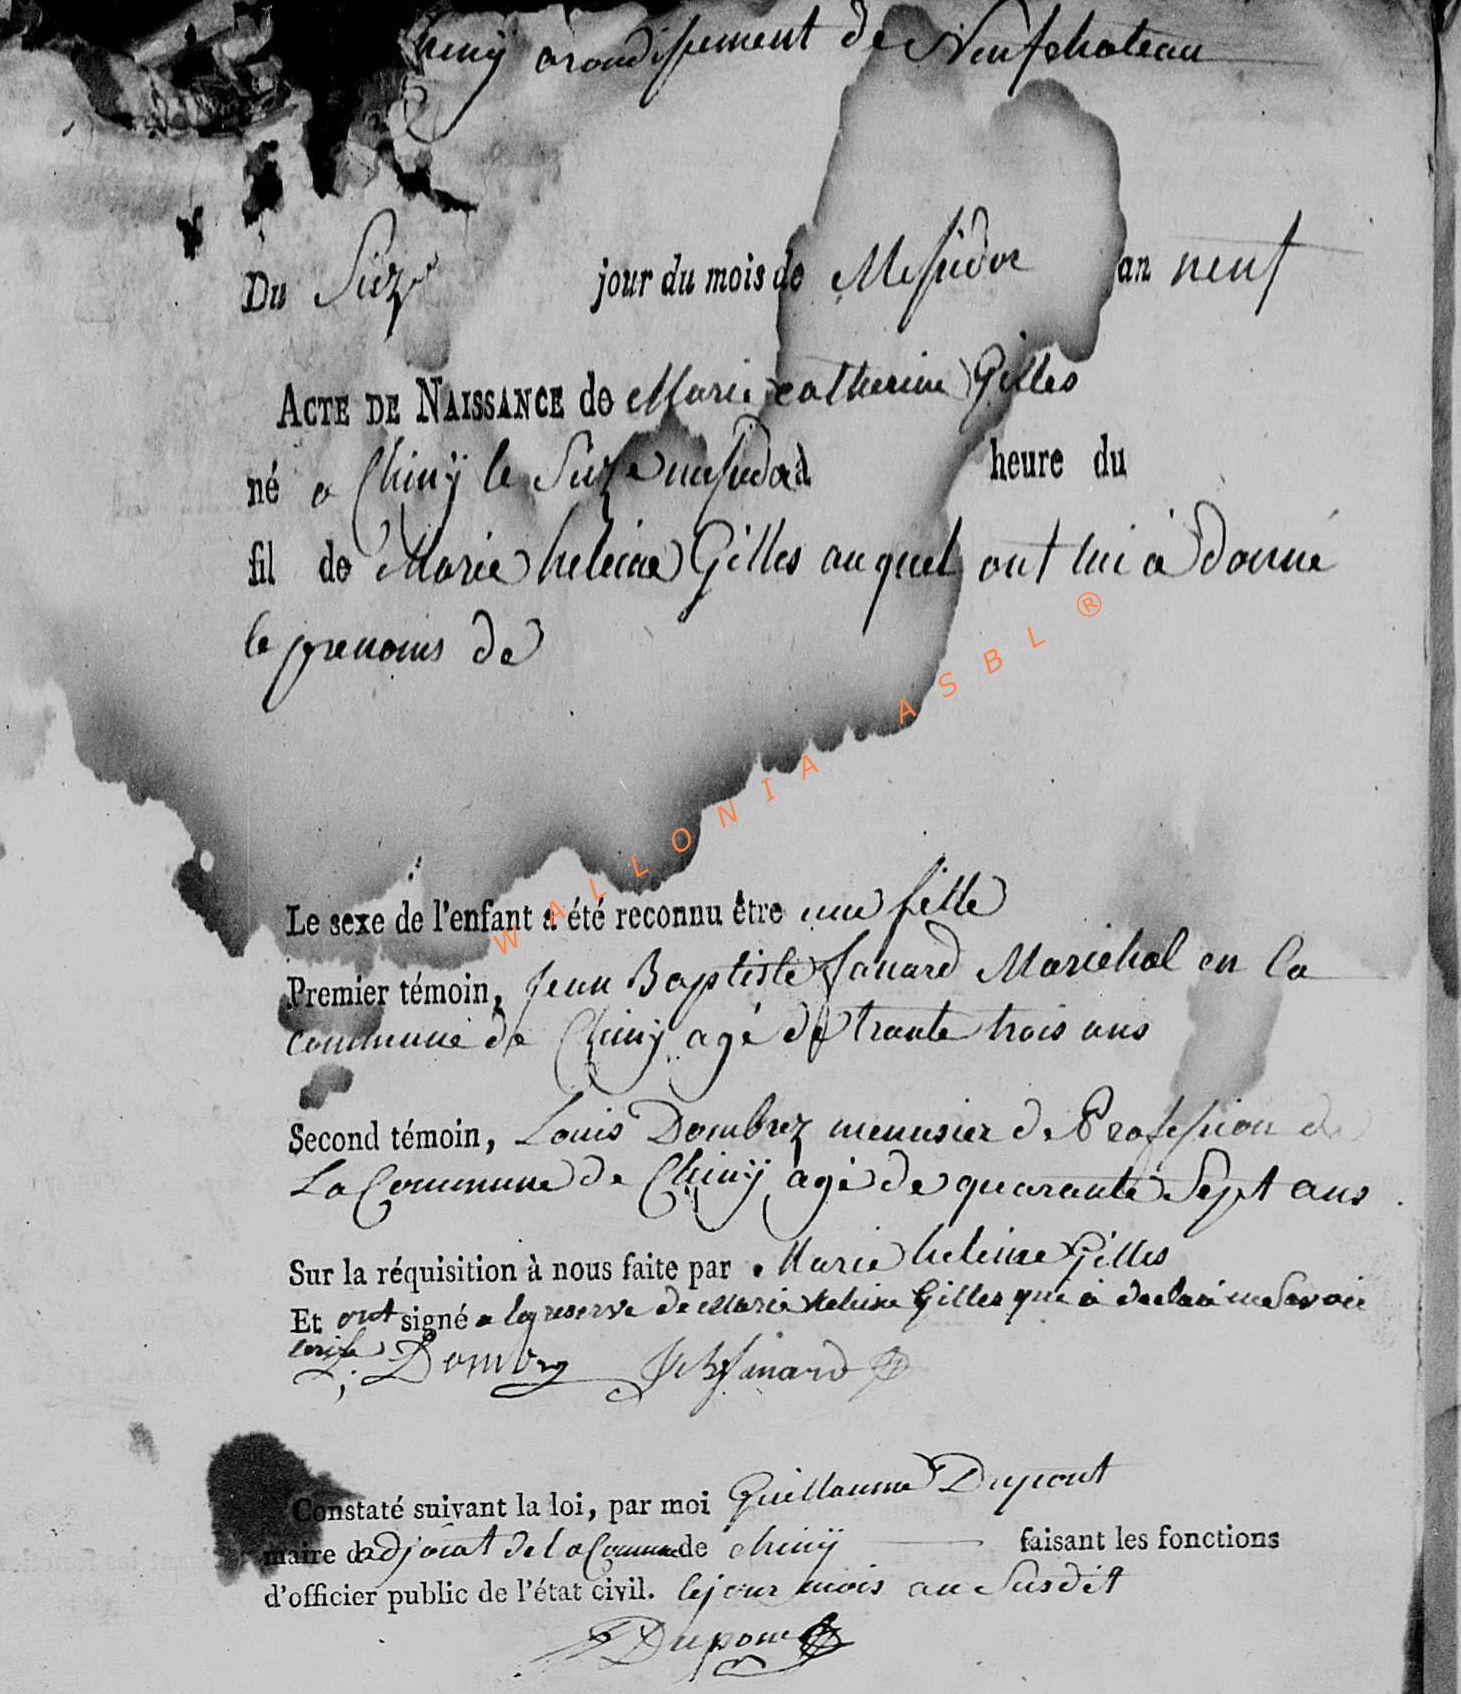 arondissement de Neufchateau
Du Sieze jour du mois de Messidor an neuf
ACTE DE NAISSANCE de Marie catherine Gilles
né a Chinÿ le Sieze messidor à heure du
fil de Marie heleine Gilles auquel ont lui à donné
le prenoms de
Le sexe de l'enfant a été reconnu être une fille
Premier témoin, Jean Baptiste Marichal en la
commune de Chiny agé de trante trois ans
Second témoin, Louis Dombrez menusier de Profession de
La Commune de Chinÿ agé de quarante Sept ans
Sur la réquisition à nous faite par Marie heleine Gilles
Et ont signé a la reserve de Marie Heleine Gilles que à declaré ne Savoir
L. Dombrez
Constaté suivant la loi, par moi Guillaume Dupont
maire adjoint de la Commune de chinÿ faisant les fonctions
d'officier public de l'état civil. le jour mois an Susdit
Dupont
WALLONIA ASBL ®